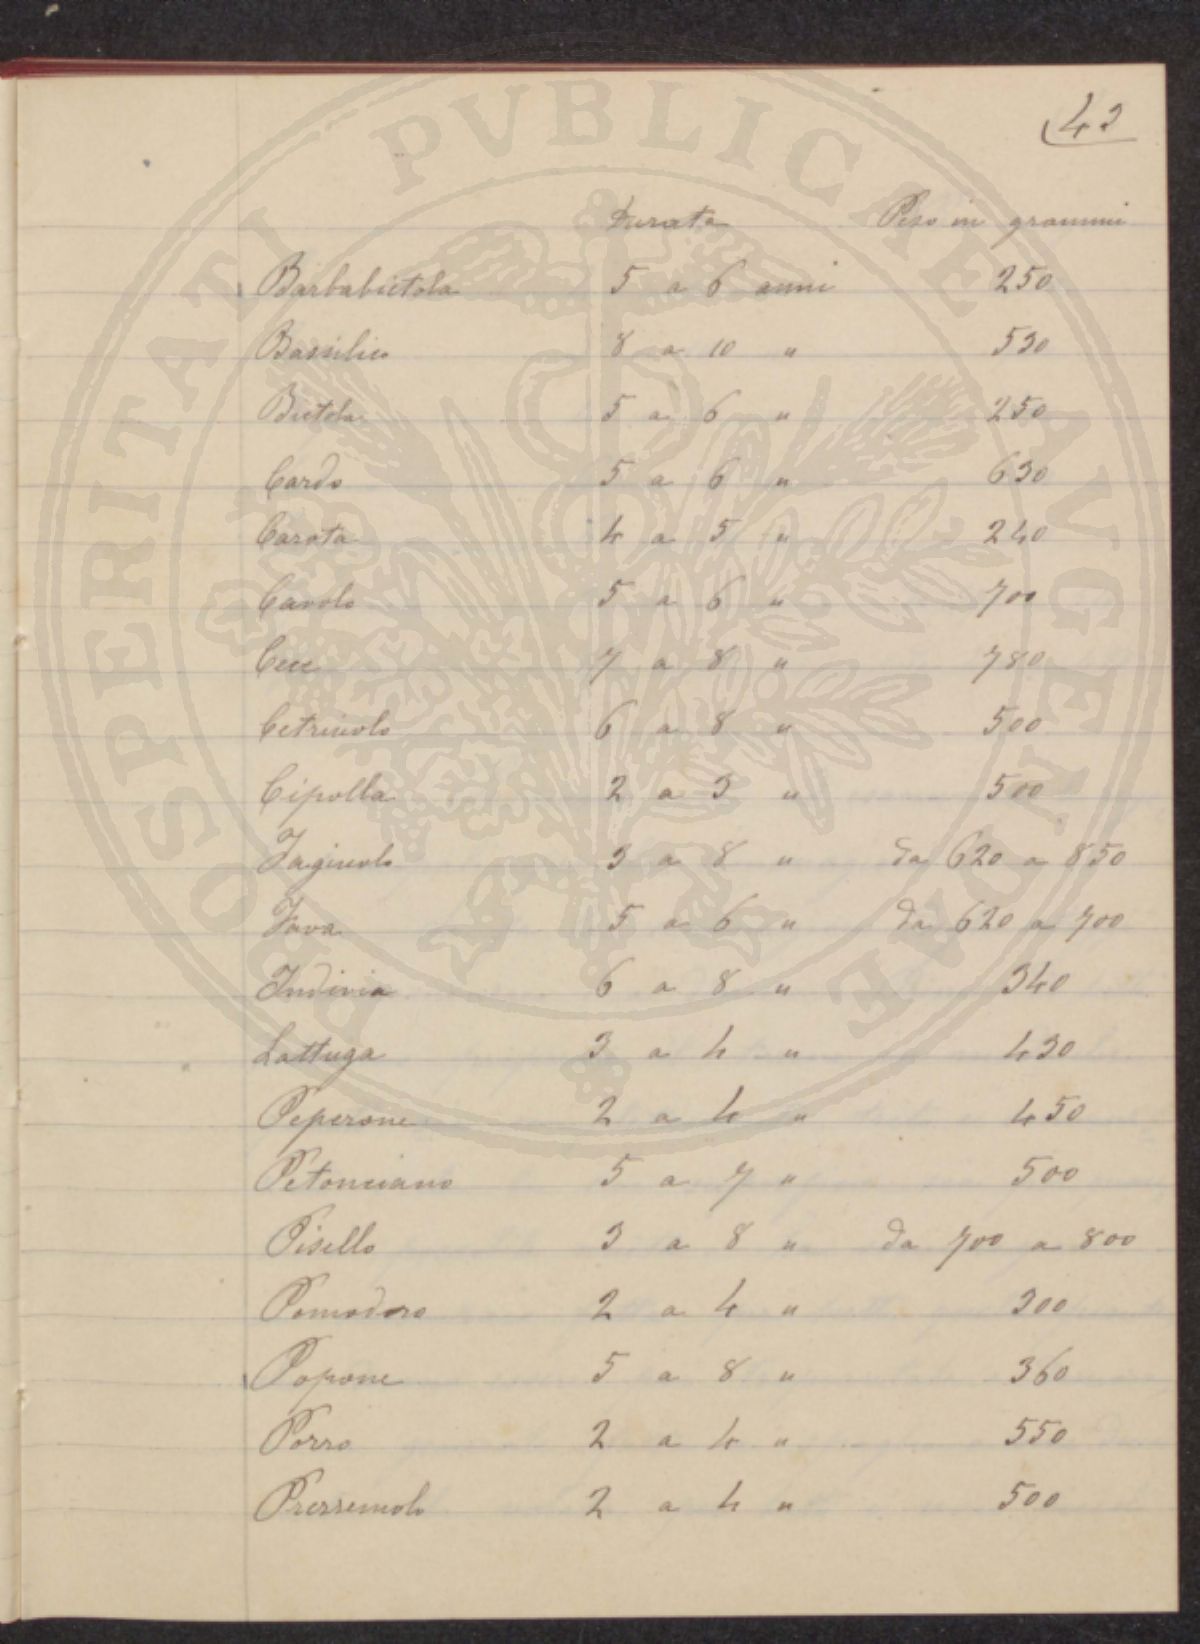 43
Durata Peso in grammi
Barbabietola 5 a 6 anni 250
Bassilico 8 a 10 " 530
Bietola 5 a 6 " 250
Cardo 5 a 6 " 630
Carota 4 a 5 " 240
Cavolo 5 a 6 " 700
Cece 7 a 8 " 780
Cetriuolo 6 a 8 " 500
Cipolla 2 a 3 " 500
Fagiuolo 3 a 8 " da 620 a 850
Fava 5 a 6 " da 620 a 700
Indivia 6 a 8 " 340
Lattuga 3 a 4 " 430
Peperone 2 a 4 " 450
Petonciano 5 a 7 " 500
Pisello 3 a 8 " da 700 a 800
Pomodoro 2 a 4 " 300
Popone 5 a 8 " 360
Porro 2 a 4 " 550
Prezzemolo 2 a 4 " 500
PROSPERITATI PVBLICAE AVGENDAE